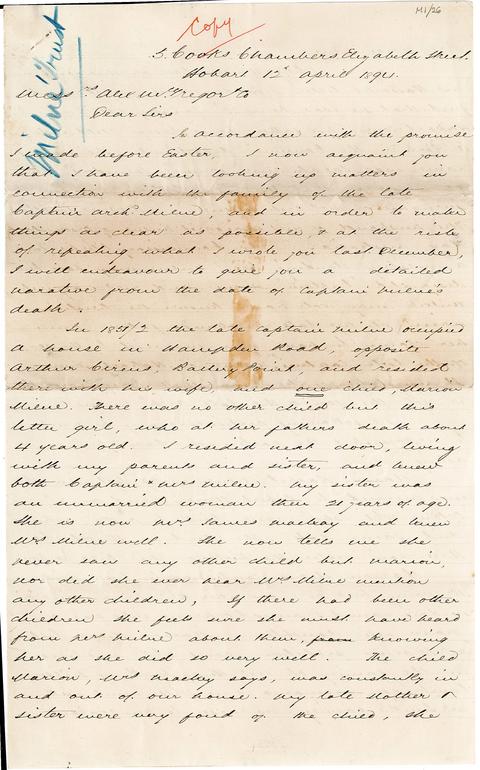 M1/26
Copy
Milne Trust
5 Cooks Chambers Elizabeth Street.
Hobart 12th April 1894.
Messrs Alex McGregor & Co
Dear Sirs
In accordance with the promise
I made before Easter, I now acquaint you
that I have been looking up matters in
connection with the family of the late
Captain Archd Milne, and in order to make
things as clear as possible, & at the risk
of repeating what I wrote you last December,
I will endeavour to give you a detailed
narative from the date of Captain Milne's
death.
In 1851/2 the late Captain Milne occupied
a house in Hampden Road, opposite
Arthur Circus, Battery Point, and resided
there with his wife, and one child, Marion
Milne. There was no other child but this
little girl, who at her fathers death about
4 years old. I resided next door, living
with my parents and sister, and knew
both Captain & Mrs Milne. My sister was
an unmarried woman then 21 years of age.
She is now Mrs James Mackay and knew
Mrs Milne well. She now tells me she
never saw any other child but Marion,
nor did she ever hear Mrs Milne mention
any other children, If there had been other
children she feels sure she must have heard
from Mrs Milne about them, knowing
her as she did so very well. The child
Marion, Mrs Mackay says, was constantly in
and out of our house. My late Mother &
sister were very fond of the child, she